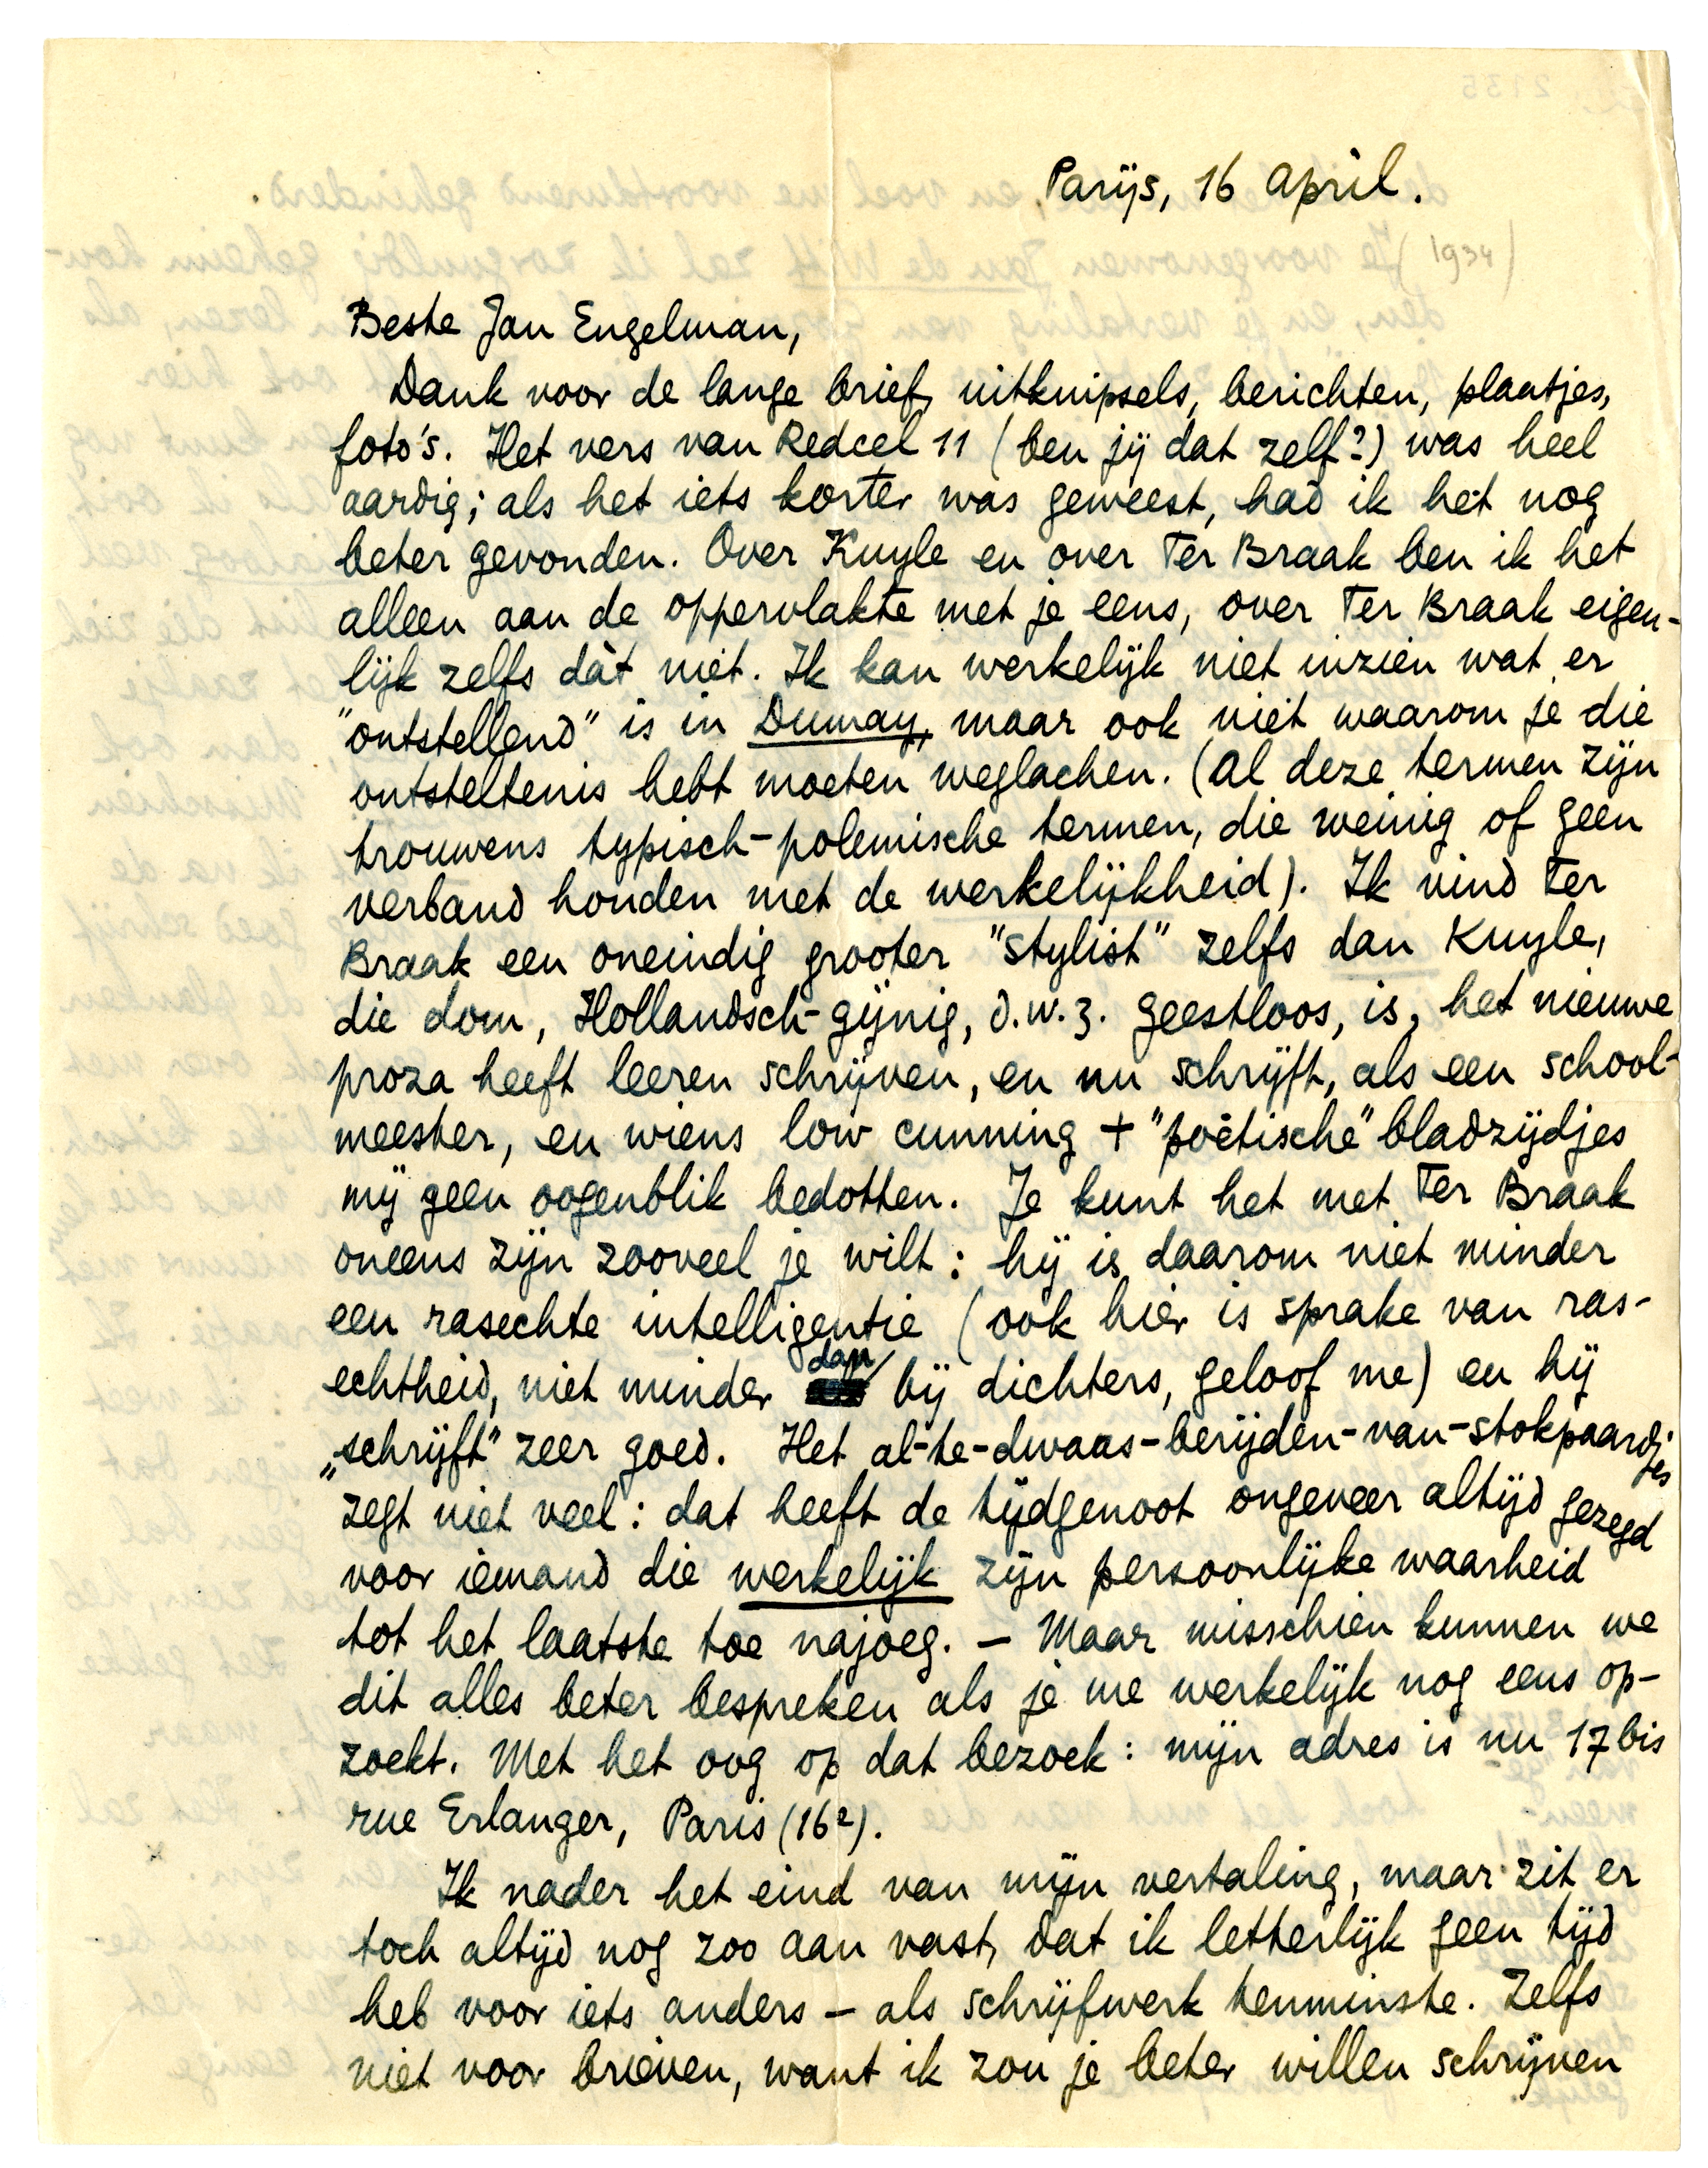 Parijs, 16 April.
(1934)
Beste Jan Engelman,
Dank voor de lange brief, uitknipsels, berichten, plaatjes,
foto's. Het vers van Redcel 11 (ben jij dat zelf?) was heel
aardig; als het iets korter was geweest, had ik het nog
beter gevonden. Over Kuyle en over Ter Braak ben ik het
alleen aan de oppervlakte met je eens, over Ter Braak eigen-
lijk zelfs dàt niet. Ik kan werkelijk niet inzien wat er
"ontstellend" is in Dumay, maar ook niet waarom je die
ontsteltenis hebt moeten weglachen. (Al deze termen zijn
trouwens typisch-polemische termen, die weinig of geen
verband houden met de werkelijkheid). Ik vind Ter
Braak een oneindig grooter "stylist" zelfs dan Kuyle,
die dom, Hollandsch-gijnig, d.w.z. geestloos, is, het nieuwe
proza heeft leeren schrijven, en nu schrijft, als een school-
meester, en wiens low cunning + "poëtische" bladzijdjes
mij geen oogenblik bedotten. Je kunt het met Ter Braak
oneens zijn zooveel je wilt: hij is daarom niet minder
een rasechte intelligentie (ook hier is sprake van ras-
echtheid, niet minder dan bij dichters, geloof me) en hij
„schrijft" zeer goed. Het al-te-dwaas-berijden-van-stokpaardjes
zegt niet veel: dat heeft de tijdgenoot ongeveer altijd gezegd
voor iemand die werkelijk zijn persoonlijke waarheid
tot het laatste toe najoeg. — Maar misschien kunnen we
dit alles beter bespreken als je me werkelijk nog eens op-
zoekt. Met het oog op dat bezoek: mijn adres is nu 17 bis
rue Erlanger, Paris (16e).
Ik nader het eind van mijn vertaling, maar zit er
toch altijd nog zoo aan vast, dat ik letterlijk geen tijd
heb voor iets anders — als schrijfwerk tenminste. Zelfs
niet voor brieven, want ik zou je beter willen schrijven